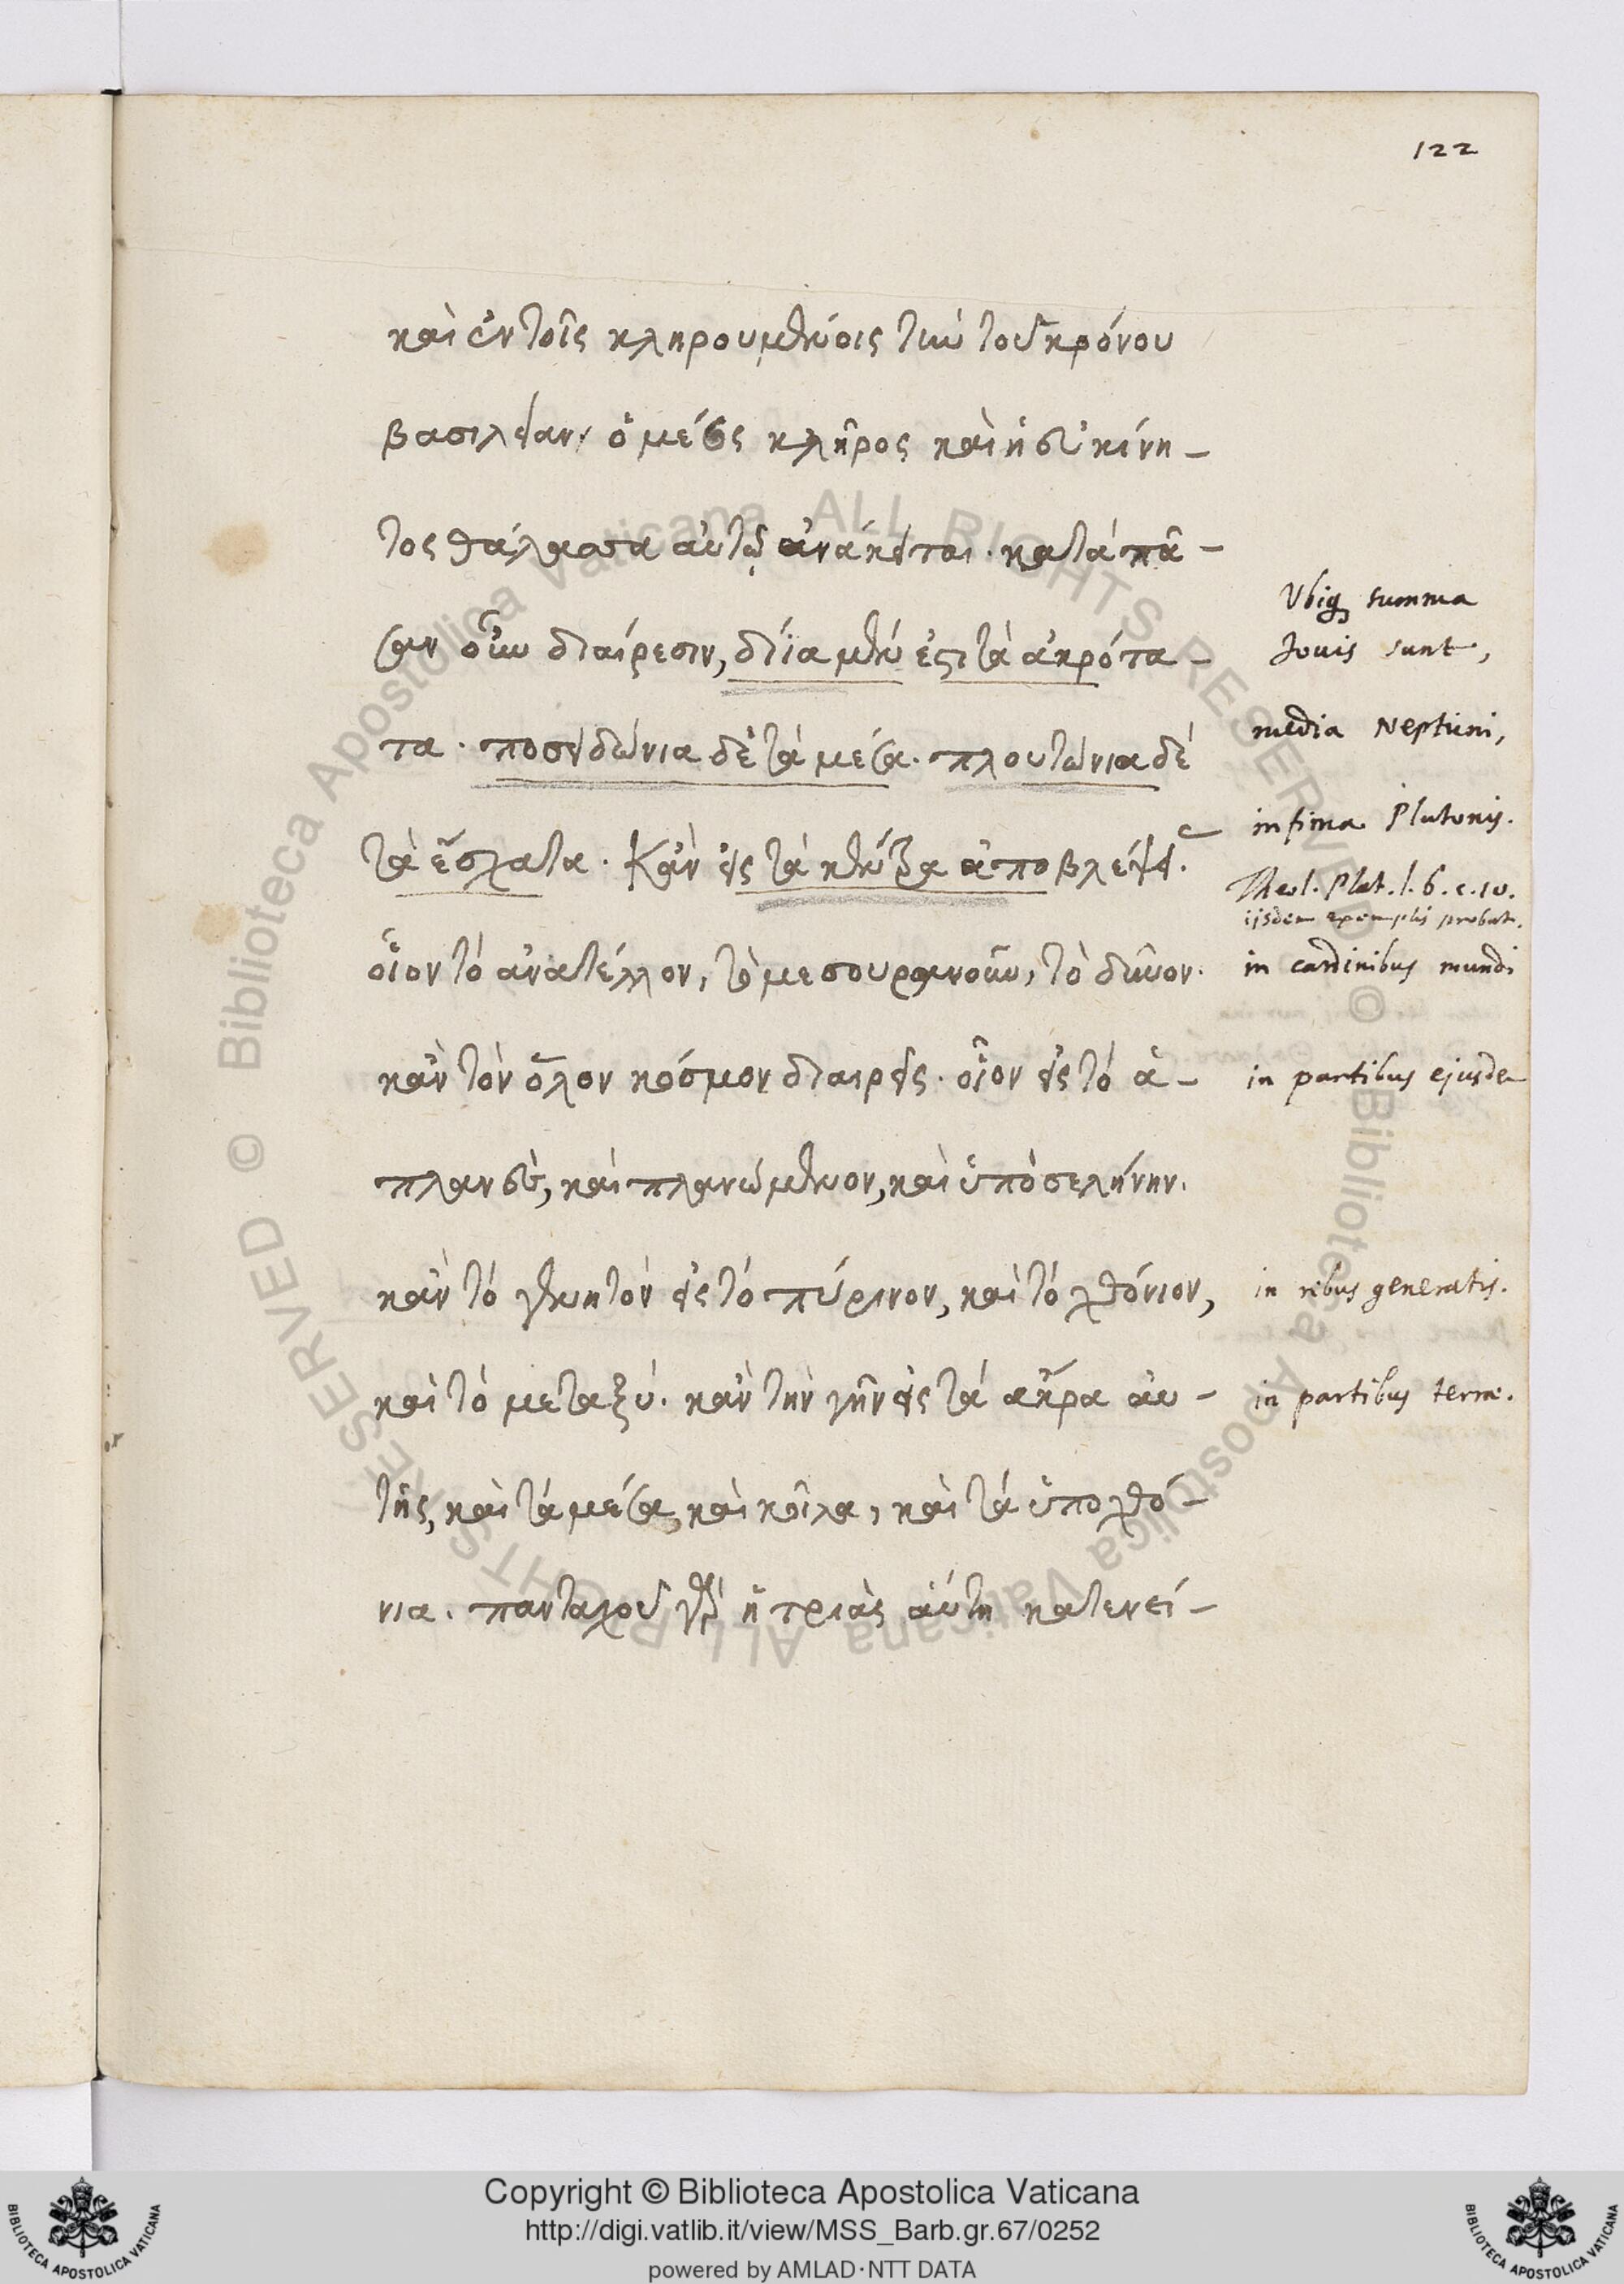 122
καὶ ἐν τοῖς κληρουμένοις τὴν τοῦ κρόνου
βασιλείαν. ὁ μέσος κλῆρος καὶ ἡ εὐκίνη-
τος θάλασσα αὐτῷ ἀνάκειται. κατὰ πᾶ-
σαν οὖν διαίρεσιν, δίϊα μέν ἐστι τὰ ἀκρότα-
τα. ποσειδώνια δὲ τὰ μέσα. πλουτώνια δὲ
τὰ ἔσχατα. Κἂν εἰς τὰ κέντρα ἀποβλέψῃς.
οἷον τὸ ἀνατέλλον, τὸ μεσουρανοῦν, τὸ δῦνον.
κἂν τὸν ὅλον κόσμον διαιρῇς. οἷον εἰς τὸ ἀ-
πλανὲς, καὶ πλανώμενον, καὶ ὑπὸ σελήνην.
κἂν τὸ γενητὸν εἰς τὸ πύρινον, καὶ τὸ χθόνιον,
καὶ τὸ μεταξύ. κἂν τὴν γῆν εἰς τὰ ἄκρα αὐ-
τῆς, καὶ τὰ μέσα, καὶ κοῖλα, καὶ τὰ ὑποχθό-
νια. πανταχοῦ γὰρ ἡ τριὰς αὕτη κατενεί-
Ubiq summa
Jovis sunt,
media Neptuni,
infima Plutonis.
Theol. Plat. l. 6. c. 10.
iisdem exemplis probat.
in cardinibus mundi
in partibus ejusdem
in rebus generatis.
in partibus terrae.
© Biblioteca Apostolica Vaticana ALL RIGHTS RESERVED © Biblioteca Apostolica Vaticana ALL RIGHTS RESERVED
Copyright © Biblioteca Apostolica Vaticana
http://digi.vatlib.it/view/MSS_Barb.gr.67/0252
powered by AMLAD·NTT DATA
BIBLIOTECA APOSTOLICA VATICANA
BIBLIOTECA APOSTOLICA VATICANA